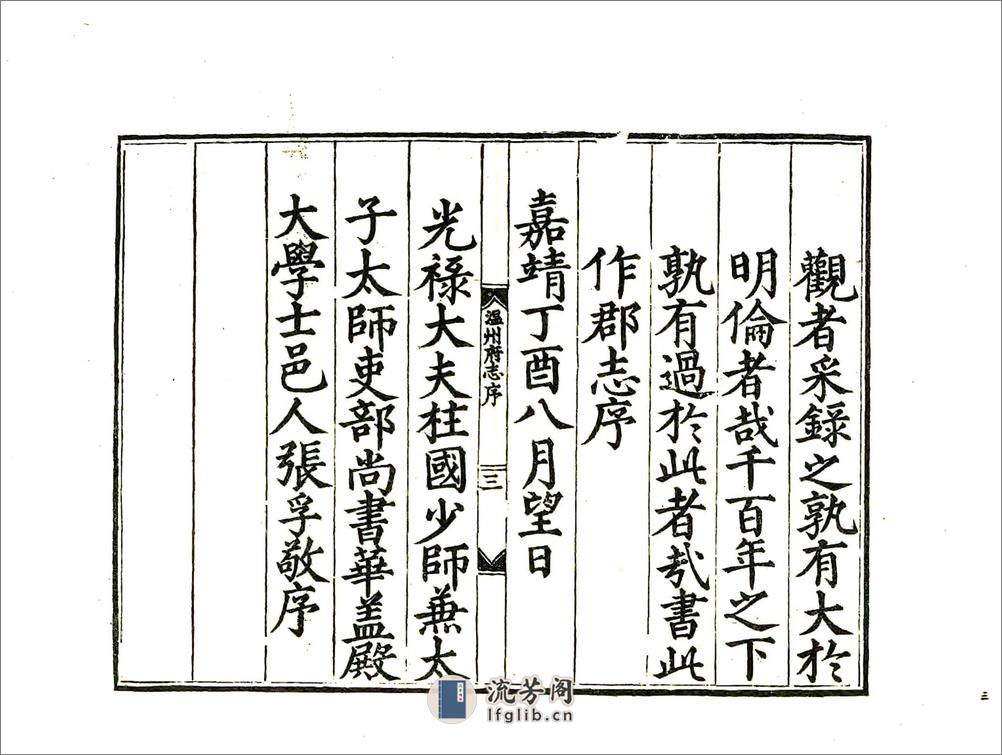 觀者采錄之孰有大於
明倫者哉千百年之下
孰有過於此者哉書此
作郡志序
嘉靖丁酉八月望日
温州府志序
三
光祿大夫柱國少師兼太
子太師吏部尚書華盖殿
大學士邑人張孚敬序
三
流芳阁
lfglib.cn